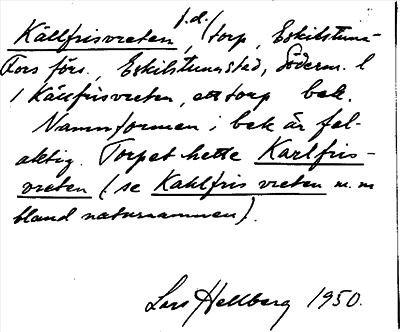 f.d.
Källfrisvreten, (torp, Eskilstuna-
Fors förs., Eskilstuna stad, Söderm. l
1 Källfrisvreten, ett torp bek.
Namnformen i bek är fel-
aktig. Torpet hette Karlfris-
vreten (se Kahlfris vreten m. m
bland naturnamnen).
Lars Hellberg 1950.